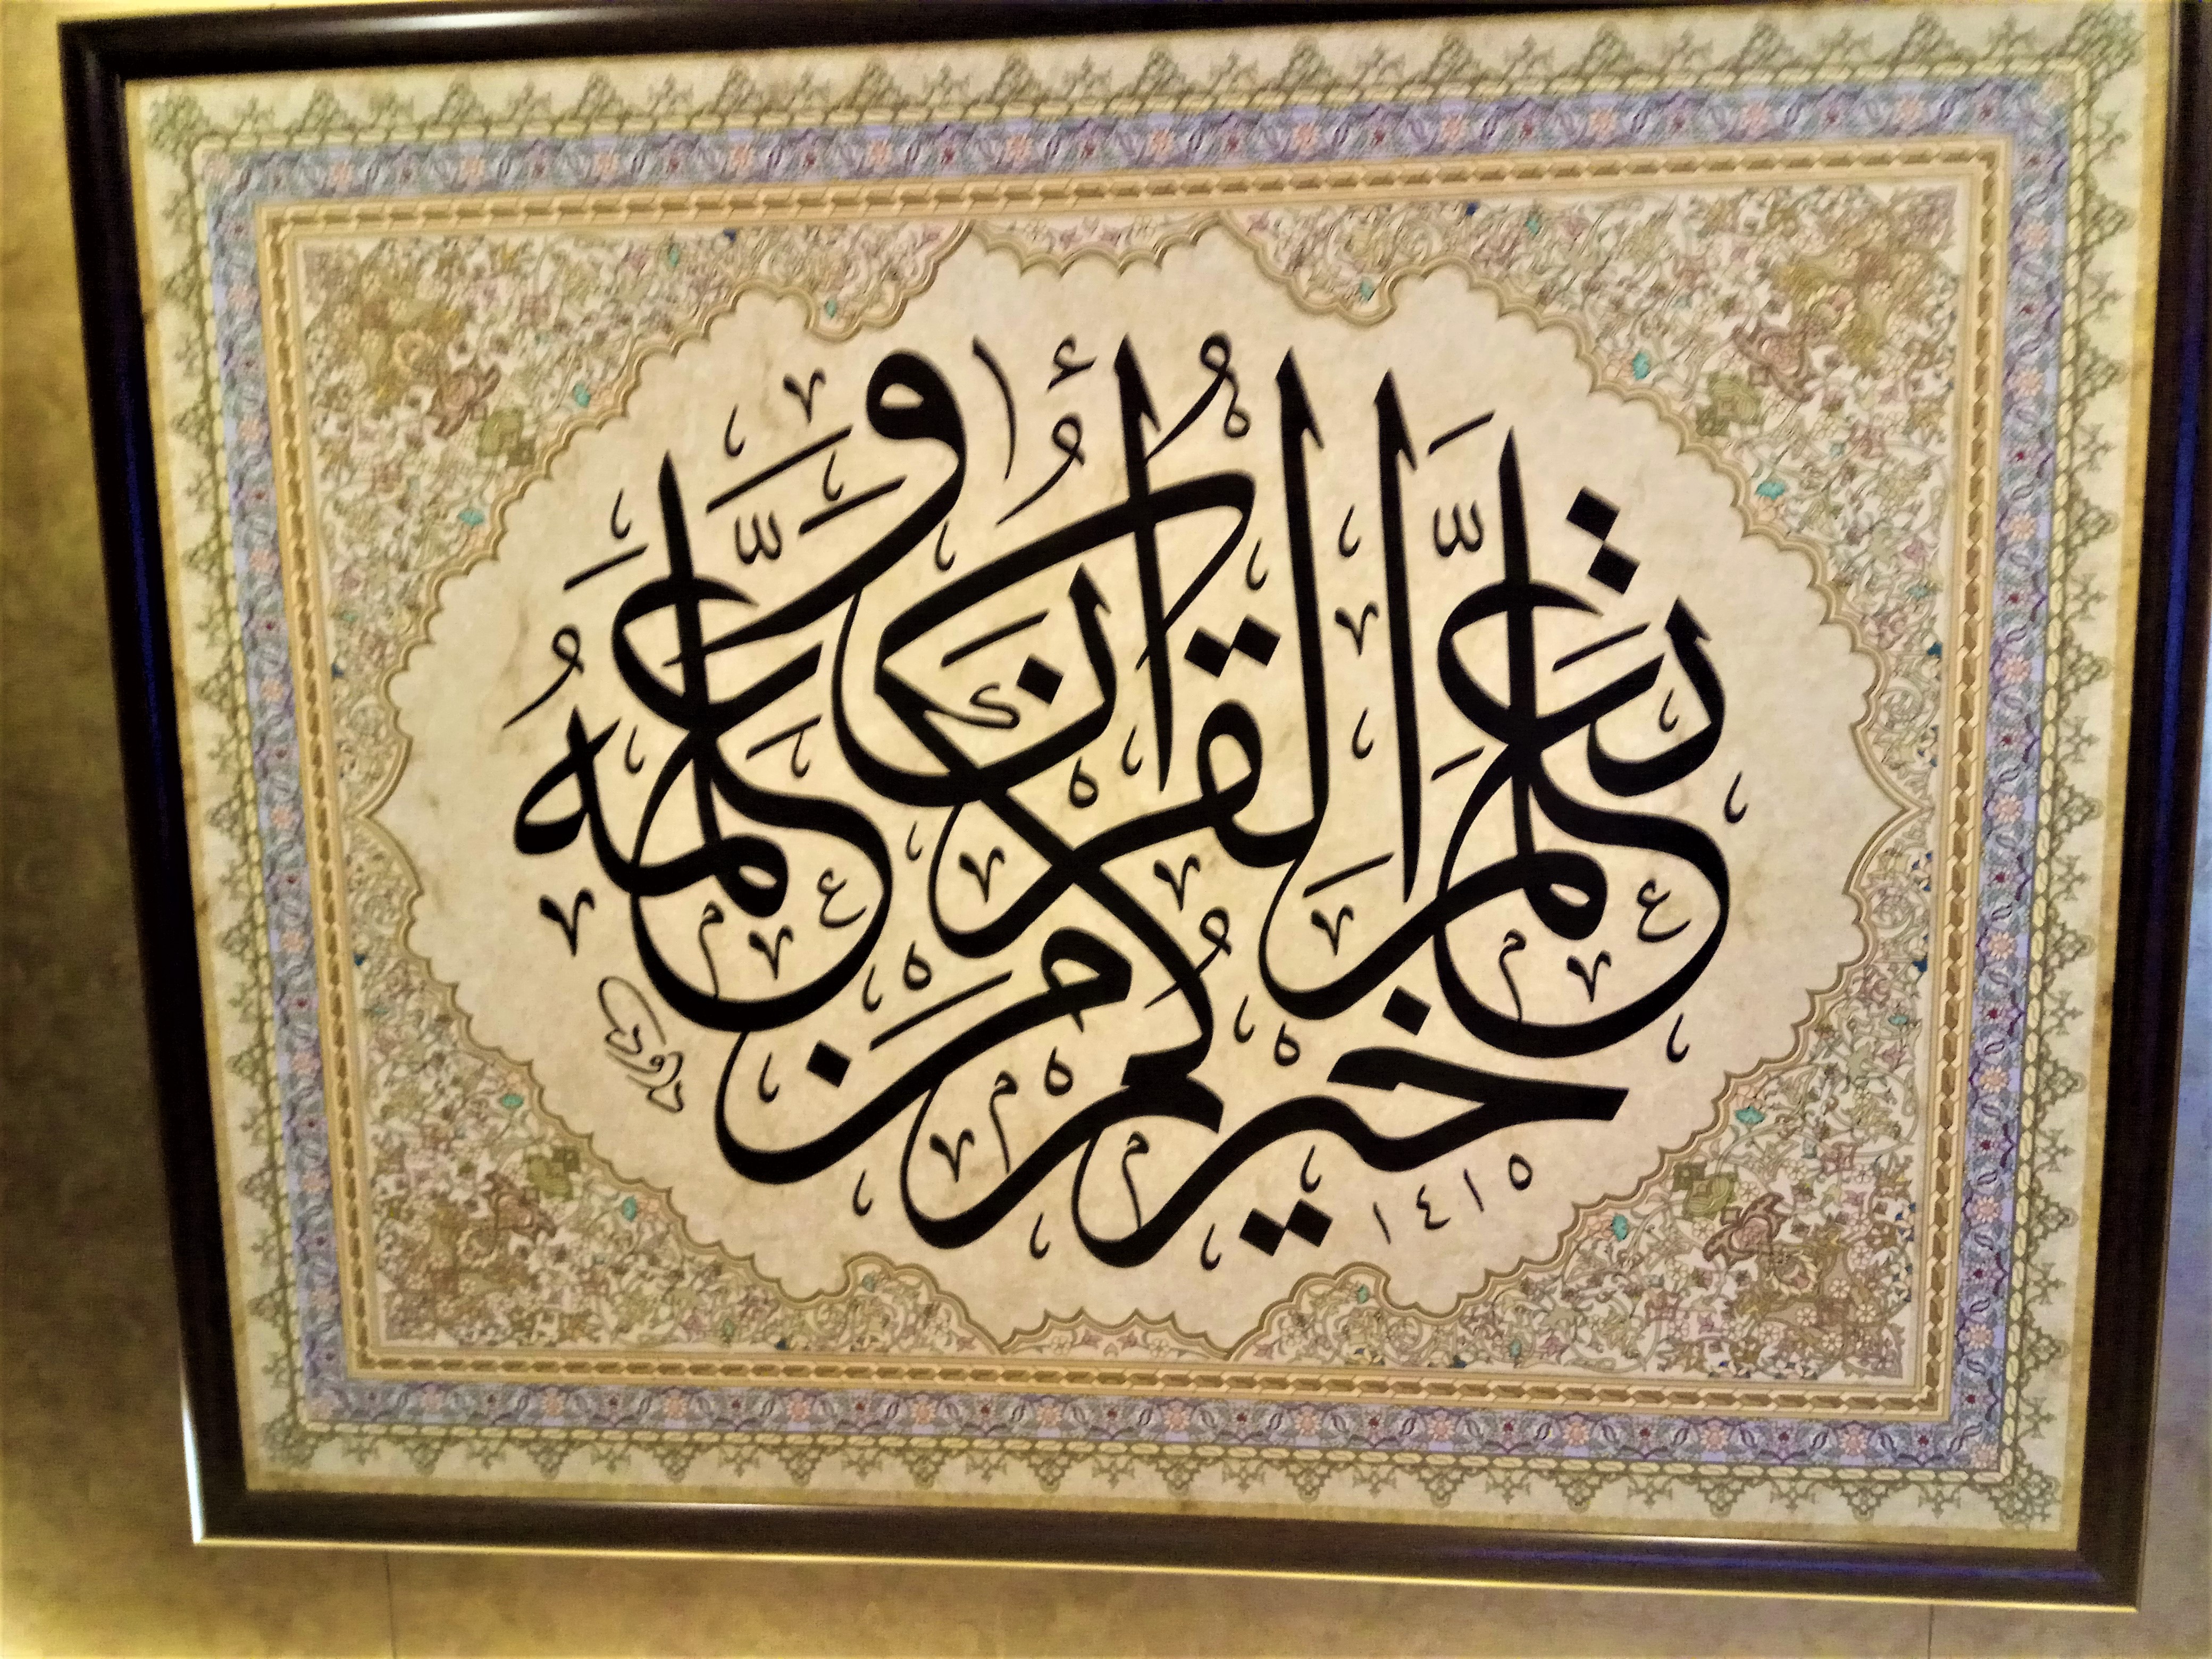 خيركُمْ مَنْ
تَعَلَّمَ الْقُرْاٰنَ وَعَلَّمَهُ
١٤١٥